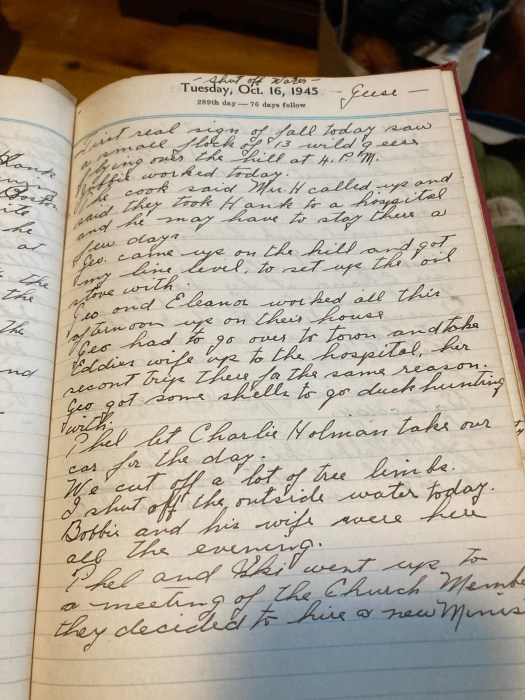 - Shut off Water -
Tuesday, Oct. 16, 1945
- Geese -
289th day — 76 days follow
First real sign of fall today saw
a small flock of 13 wild geese
flying over the hill at 4. P.M.
Bobbie worked today.
The cook said Mrs. H called up and
said they took Hank to a hospital
and he may have to stay there a
few days.
Geo. came up on the hill and got
my line level, to set up the oil
stove with.
Geo and Eleanor worked all this
afternoon up on their house
Geo had to go over to town and take
Eddies wife up to the hospital, her
secont trip there for the same reason.
Geo got some shells to go duck hunting
with.
Phel let Charlie Holman take our
car for the day.
We cut off a lot of tree limbs.
I shut off the outside water today.
Bobbie and his wife were here
all the evening.
Phel and went up to
a meeting of the Church Memb
they decided to hire a new Minis
Hank
Bosto
he
at
the
the
the
nd